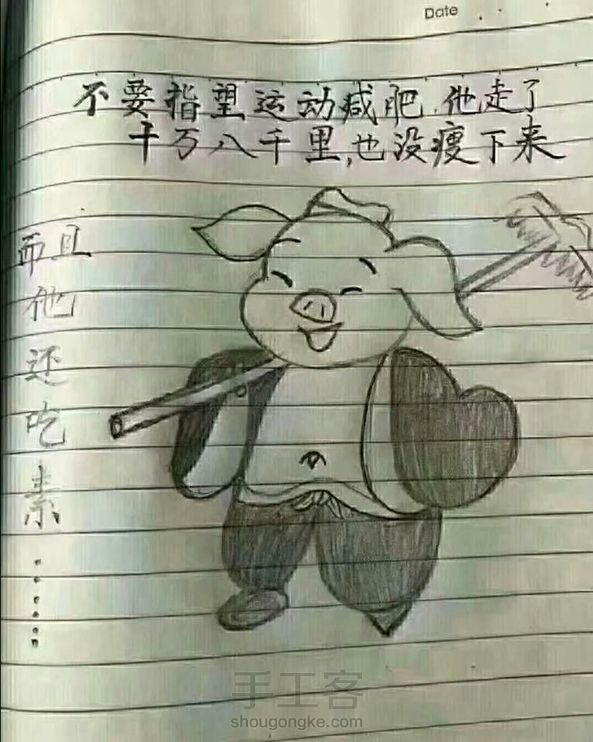 Date
不要指望运动减肥,他走了
十万八千里,也没瘦下来
而且
他
还
吃
素
......
手工客
shougongke.com